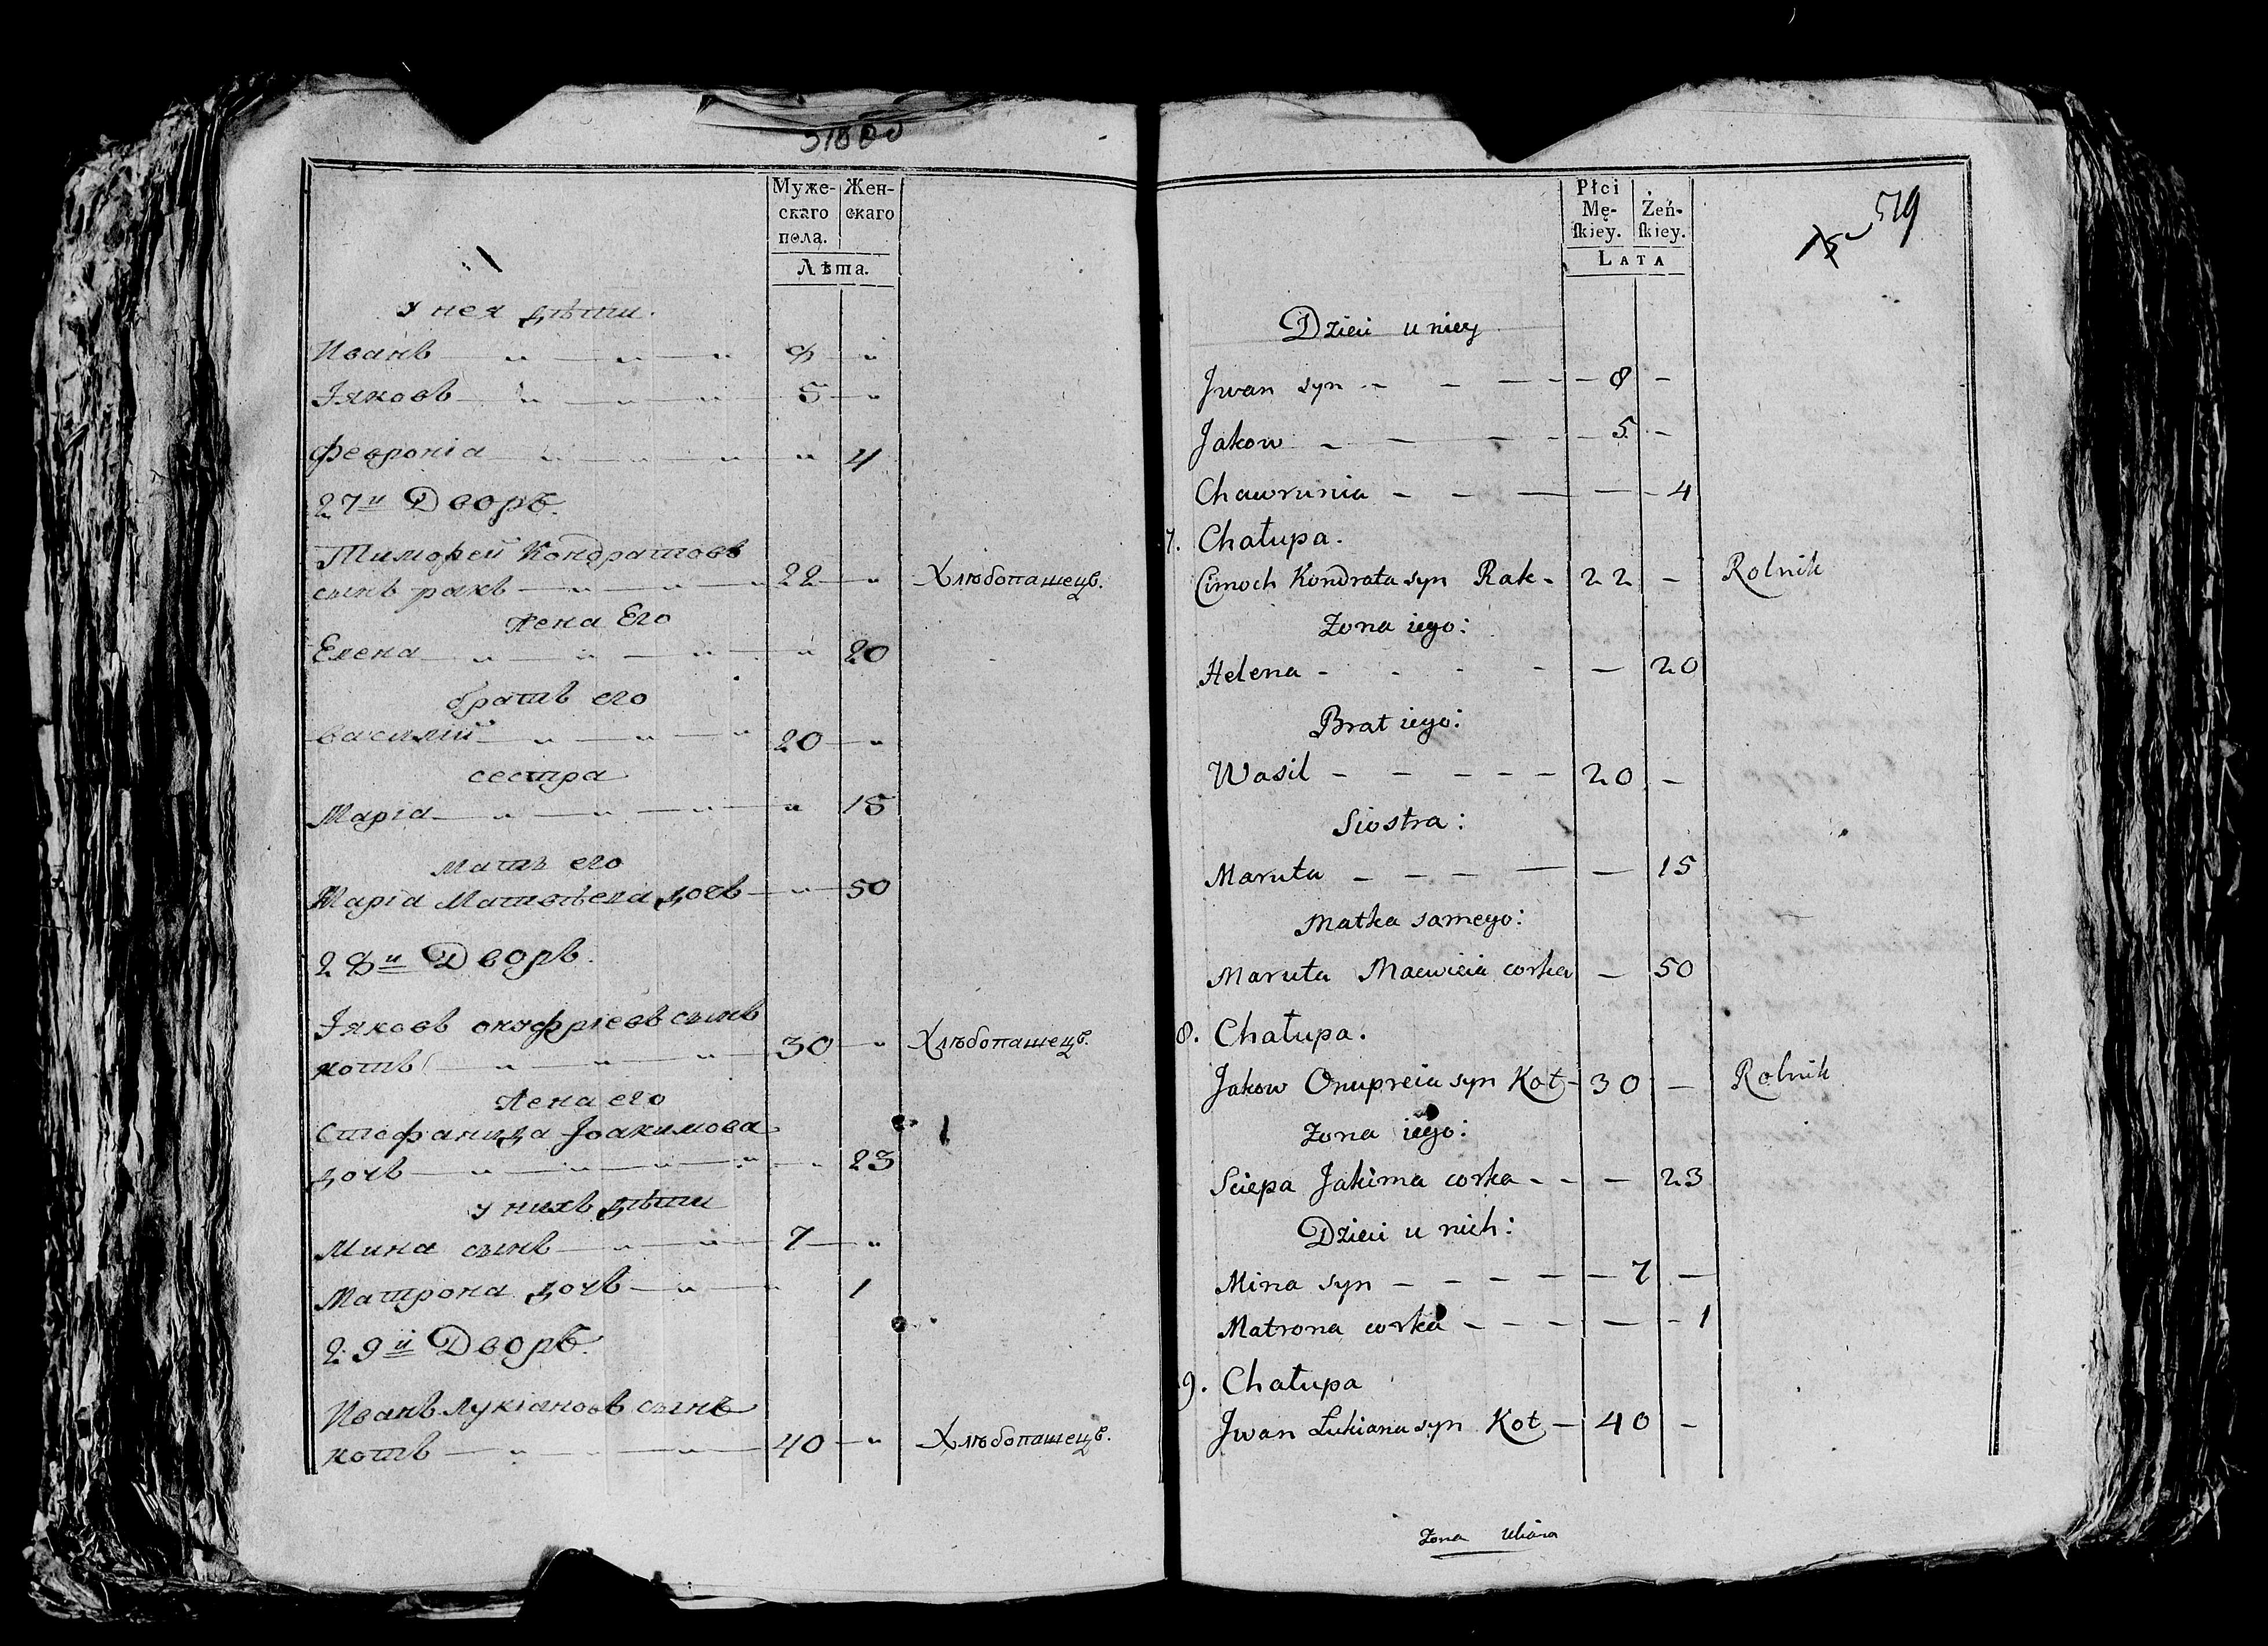 Муже-
скаго
пола.
Жен-
скаго
Лѣта.
У нея дѣти.
Иванъ 8 "
Іяковъ 5 "
Феѵронія " 4
27й Дворъ.
Тимофей Кондратовъ
сынъ ракъ 22 " Хлѣбопашецъ.
Жена Его
Елена " 20
братъ его
василій 20 "
сестра
Марія " 15
Мать его
Марія Матвѣева дочь " 50
28й Дворъ.
Іяковъ онуфріевъ сынъ
котъ 30 " Хлѣбопашецъ.
Жена его
Стефанида Іоакимова
дочь " 23
у нихъ дѣти
Мина сынъ 7 "
Матрона дочь " 1
29й Дворъ.
Иванъ Лукіановъ сынъ
котъ 40 " Хлѣбопашецъ.
Płci
Mę-
ſkiey.
Żeń-
ſkiey.
LATA
519
Dzieci u niey
Jwan syn - 8 -
Jakow - 5 -
Chawrunia - - 4
7. Chałupa.
Cimoch Kondrata syn Rak - 22 - Rolnik
Zona iego:
Helena - - 20
Brat iego:
Wasil - 20 -
Siostra:
Maruta - - 15
Matka samego:
Maruta Macwieia corka - 50
8. Chałupa.
Jakow Onupreia syn Kot - 30 - Rolnik
Zona iego:
Sciepa Jakima corka - - 23
Dzieci u nich:
Mina syn - 7 -
Matrona corka - - 1
9. Chałupa
Jwan Łukiana syn Kot - 40 -
Zona Uliana